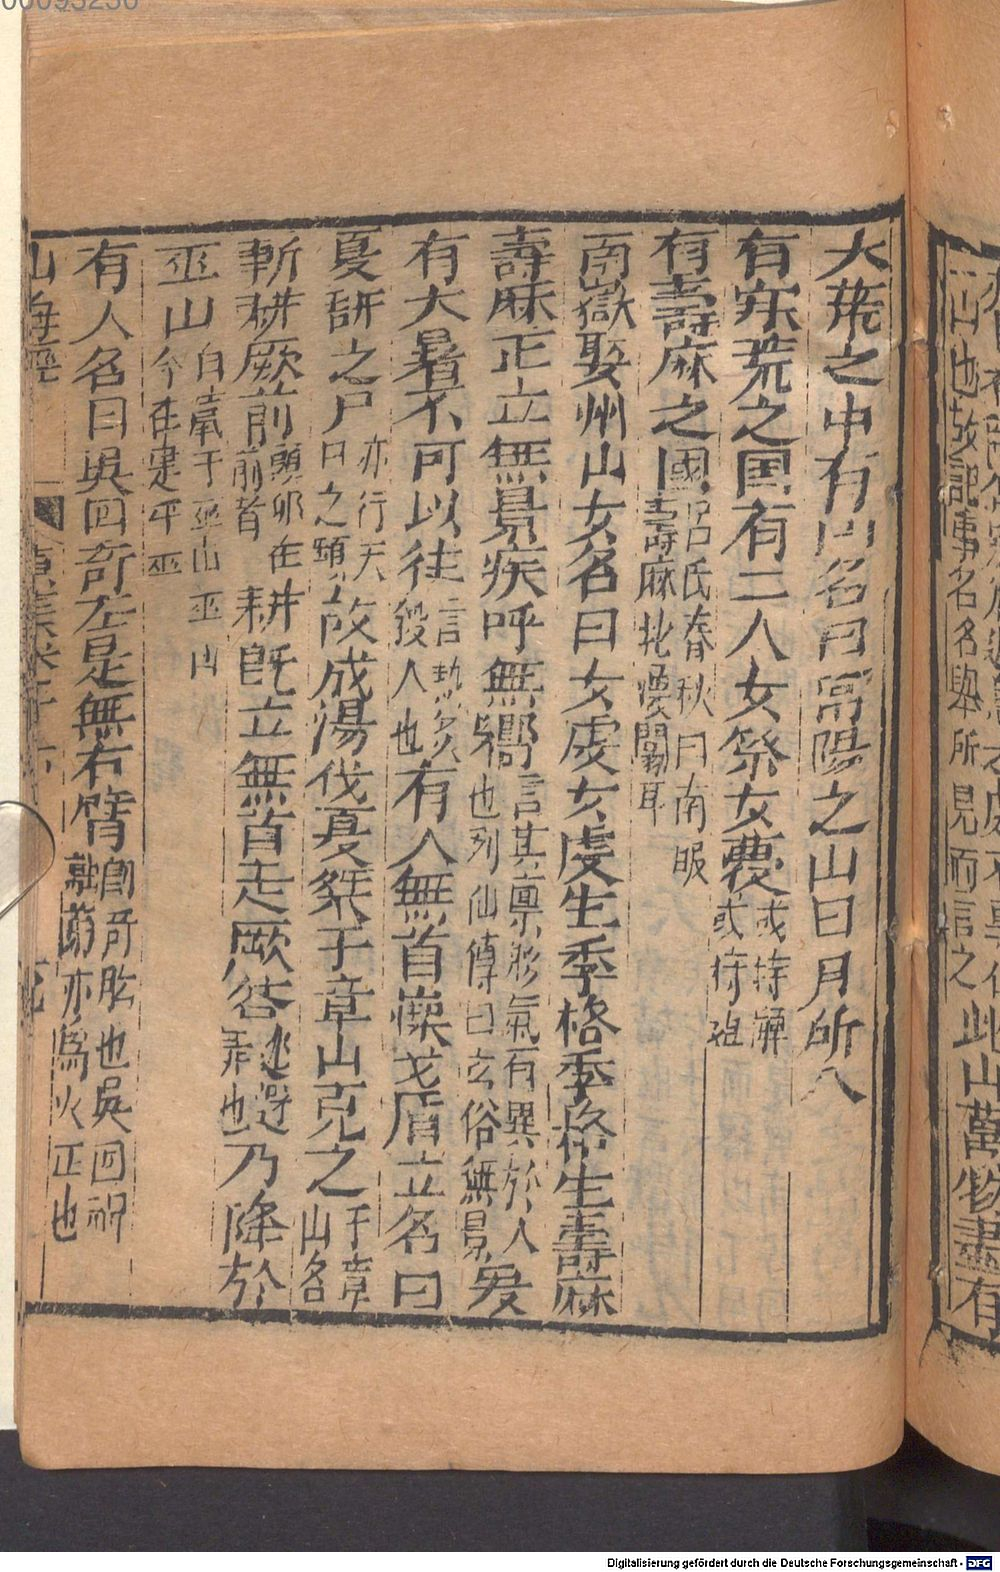 一山也故記事名名與所見而言之此山萬物盡有
大荒之中有山名曰常陽之山日月所入
有寒荒之国有二人女祭女薎或持觶或持俎
有壽麻之國呂氏春秋曰南服壽麻北懷闟耳
南嶽娶州山女名曰女虔女虔生季格季格生壽麻
壽麻正立無景疾呼無嚮言其稟形氣有異於人也列仙傳曰玄俗無景爰
有大暑不可以往言熱炙殺人也有人無首操戈盾立名曰
夏耕之尸亦行天曰之類故成湯伐夏桀于章山克之于章山名
斬耕厥前頭亦在前者耕既立無首走厥咎逃避罪也乃降於
巫山自竄于巫山巫山今在建平巫
有人名曰吳回奇左是無右臂卽奇肱也吳回祝融弟亦爲火正也
山海經
00093256
Digitalisierung gefördert durch die Deutsche Forschungsgemeinschaft - DFG